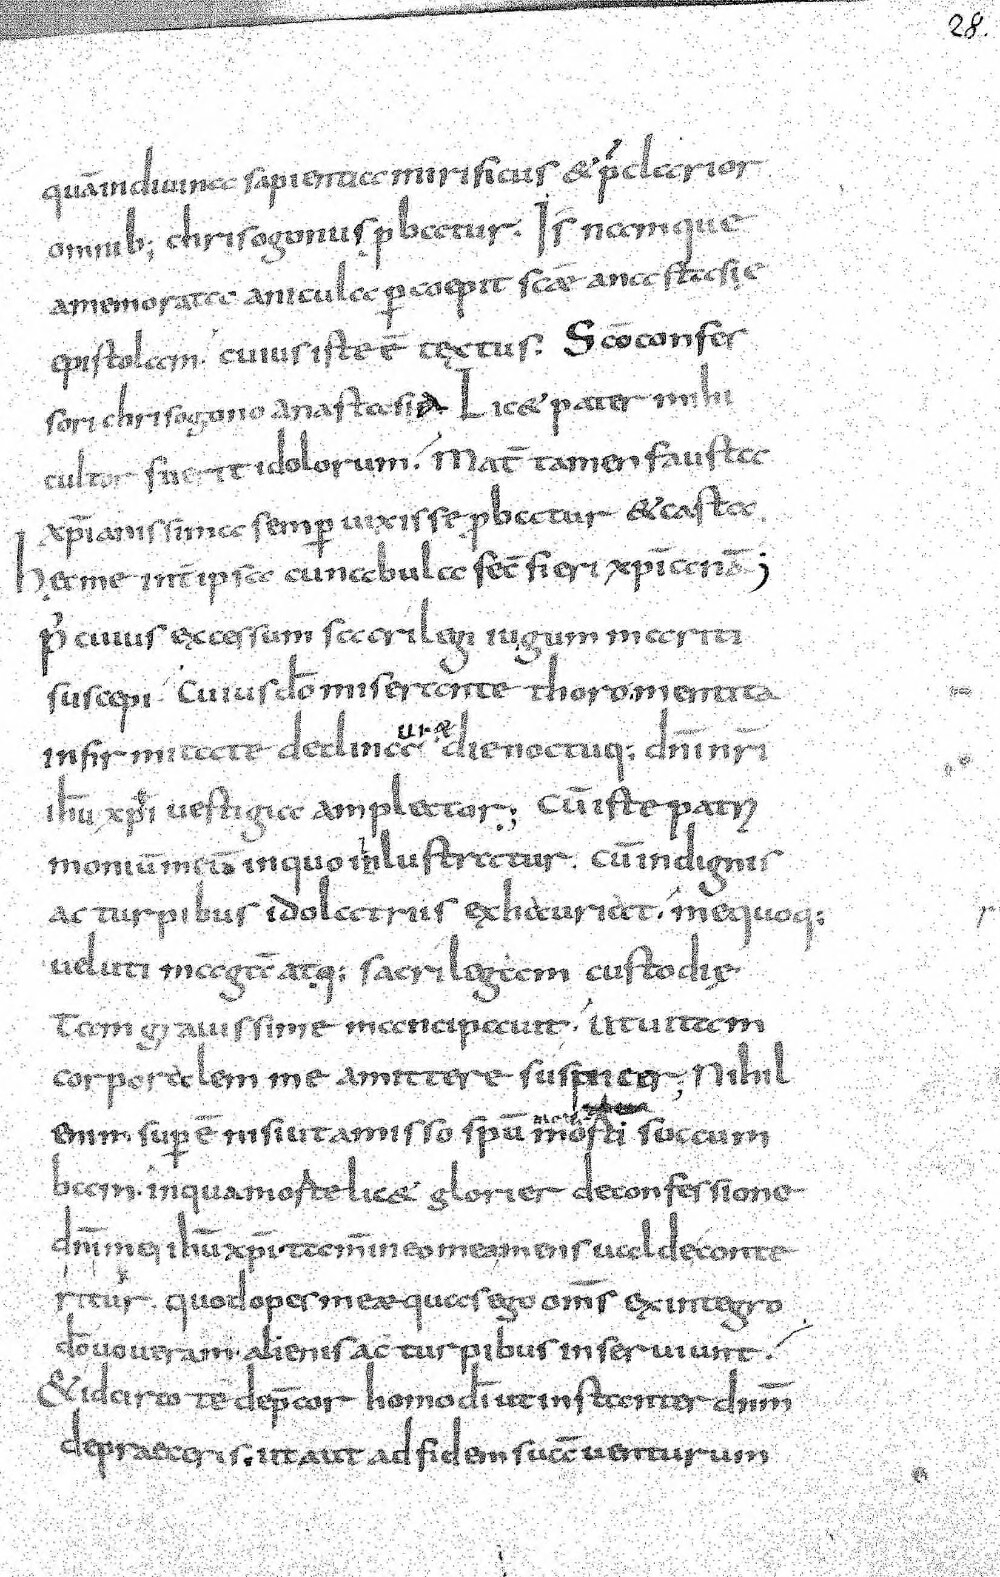 28.
quā in diuina sapientia mirificus & p̄clarior
omnib; chrisogonus ꝓbatur. Is namque
amemorata anicula ꝑcoepit scǣ anastasię
epistolam. cuius iste ē tęxtus. Scō confes
sori chrisogono anastasia. Lic& pater mihi
cultor fuerit idolorum. Mat̄ tamen fausta
xp̄ianissima semꝑ uixisse ꝓbatur & casta.
hęc me int̄ ipsa cunabula fec̄ fieri xp̄ianā;
P̄ cuius excessum sacrilegi iugum mariti
suscepi. Cuius dō miserante thoro mentita
infirmitate declinaui die noctuq; dn̄i nr̄i
ihū xp̄i uestigia amplector; Cū iste patri
moniū meū in quo inlustratur. cū indignis
ac turpibus idolatriis exhauriat. me quoq;
ueluti magā atq; sacrilegam custodię
Tam grauissime mancipauit. ut uitam
corporalem me amittere suspicer; Nihil
enim suꝑ ē nisi ut amisso spū succum
bam. in qua morte lic& glorier de confessione
dn̄i mei ihū xp̄i. tam̄ in eo mea mens ualde conte
ritur. quod opes meæ quas ego om̄s ex integro
dō uoueram. alienis ac̄ turpibus inseruiunt.
& idcirco te dep̄cor homo dī ut instanter dnm̄
depraeceris. ut aut ad fidem suā uenturum